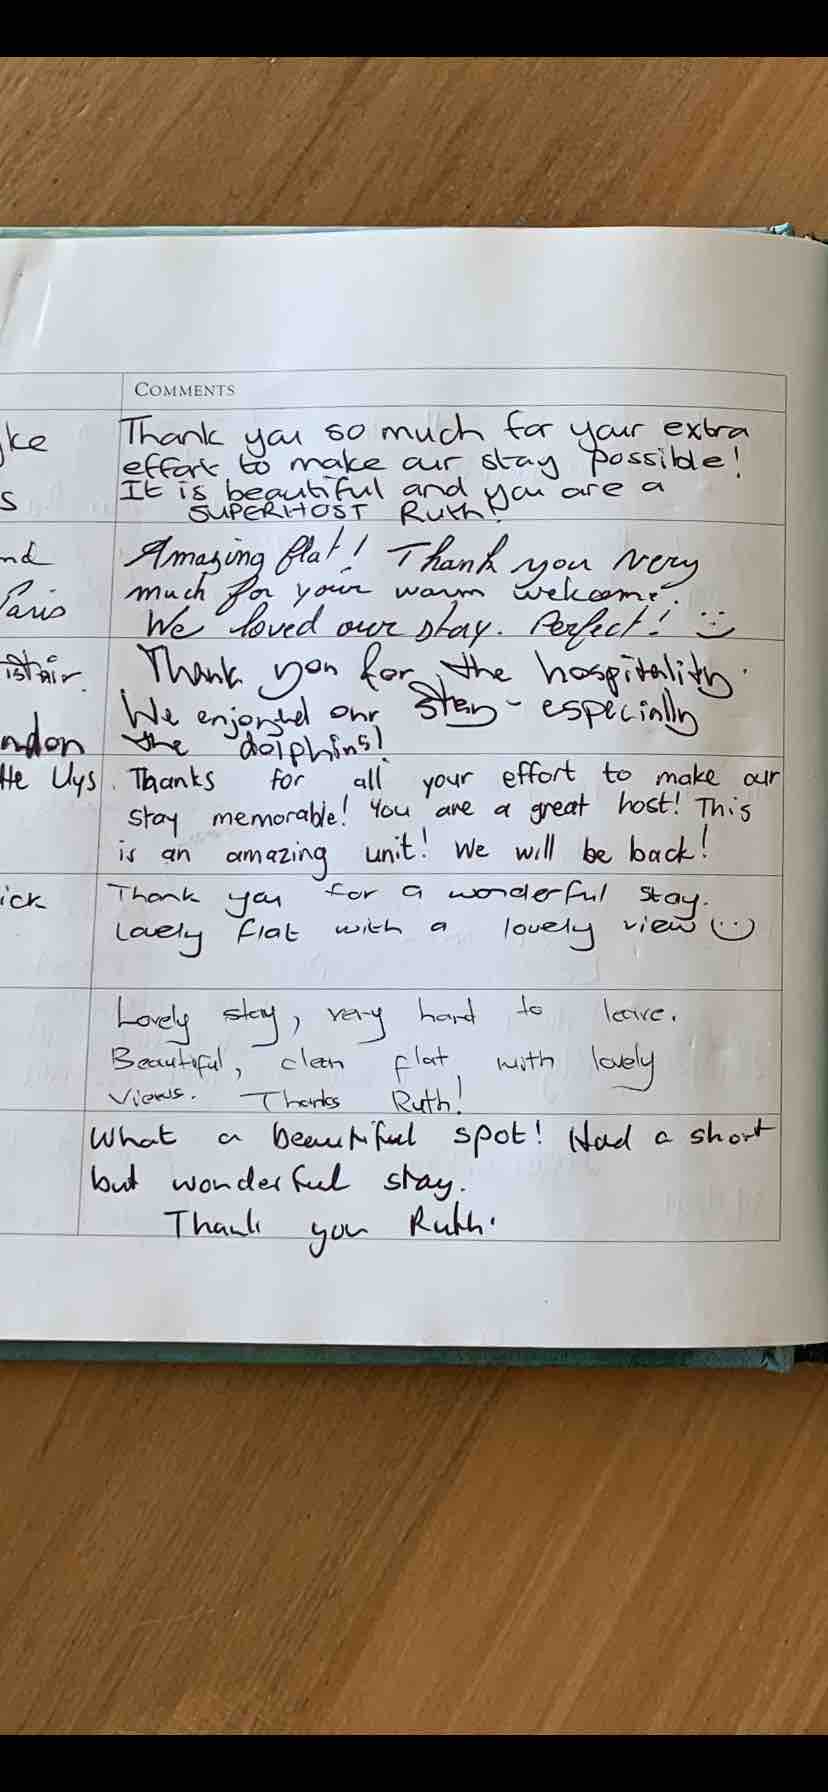 COMMENTS
Thank you so much for your extra
effort to make our stay possible!
It is beautiful and you are a
SUPERHOST Ruth!
Amazing flat! Thank you very
much for your warm welcome.
Paris
We loved our stay. Perfect! :-)
Thank you for the hospitality.
We enjoyed our stay - especially
ndon the dolphins!
Uys. Thanks for all your effort to make our
stay memorable! You are a great host! This
is an amazing unit! We will be back!
ick Thank you for a wonderful stay.
Lovely flat with a lovely view :)
Lovely stay, very hard to leave.
Beautiful, clean flat, with lovely
views. Thanks Ruth!
What a beautiful spot! Had a short
but wonderful stay.
Thank you Ruth.